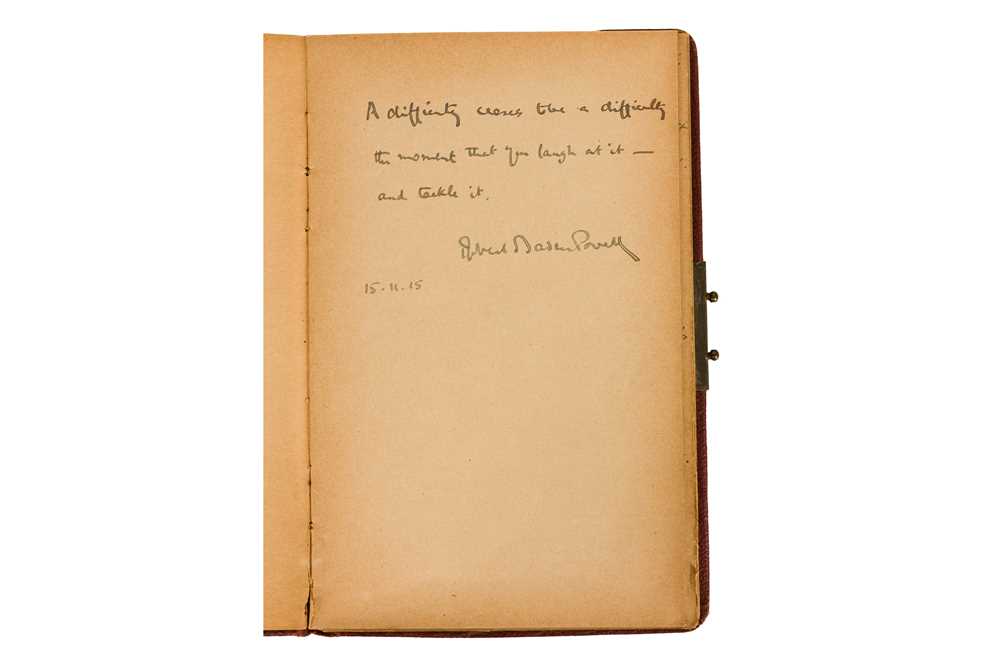 A difficulty ceases to be a difficulty
the moment that you laugh at it —
and tackle it.
Robert Baden Powell
15.11.15